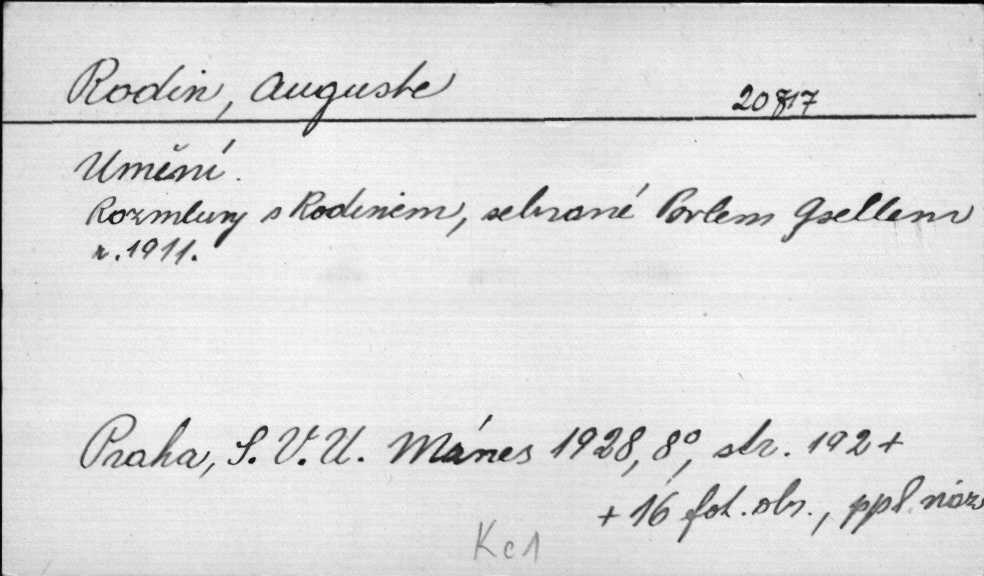 Rodin, Auguste
20817
Umění.
Rozmluvy s Rodinem, sebrané Pavlem Gsellem
r. 1911.
Praha, S. V. U. Mánes 1928, 8°, str. 192 +
+ 16 fot. obr., ppl. náz
Kc1